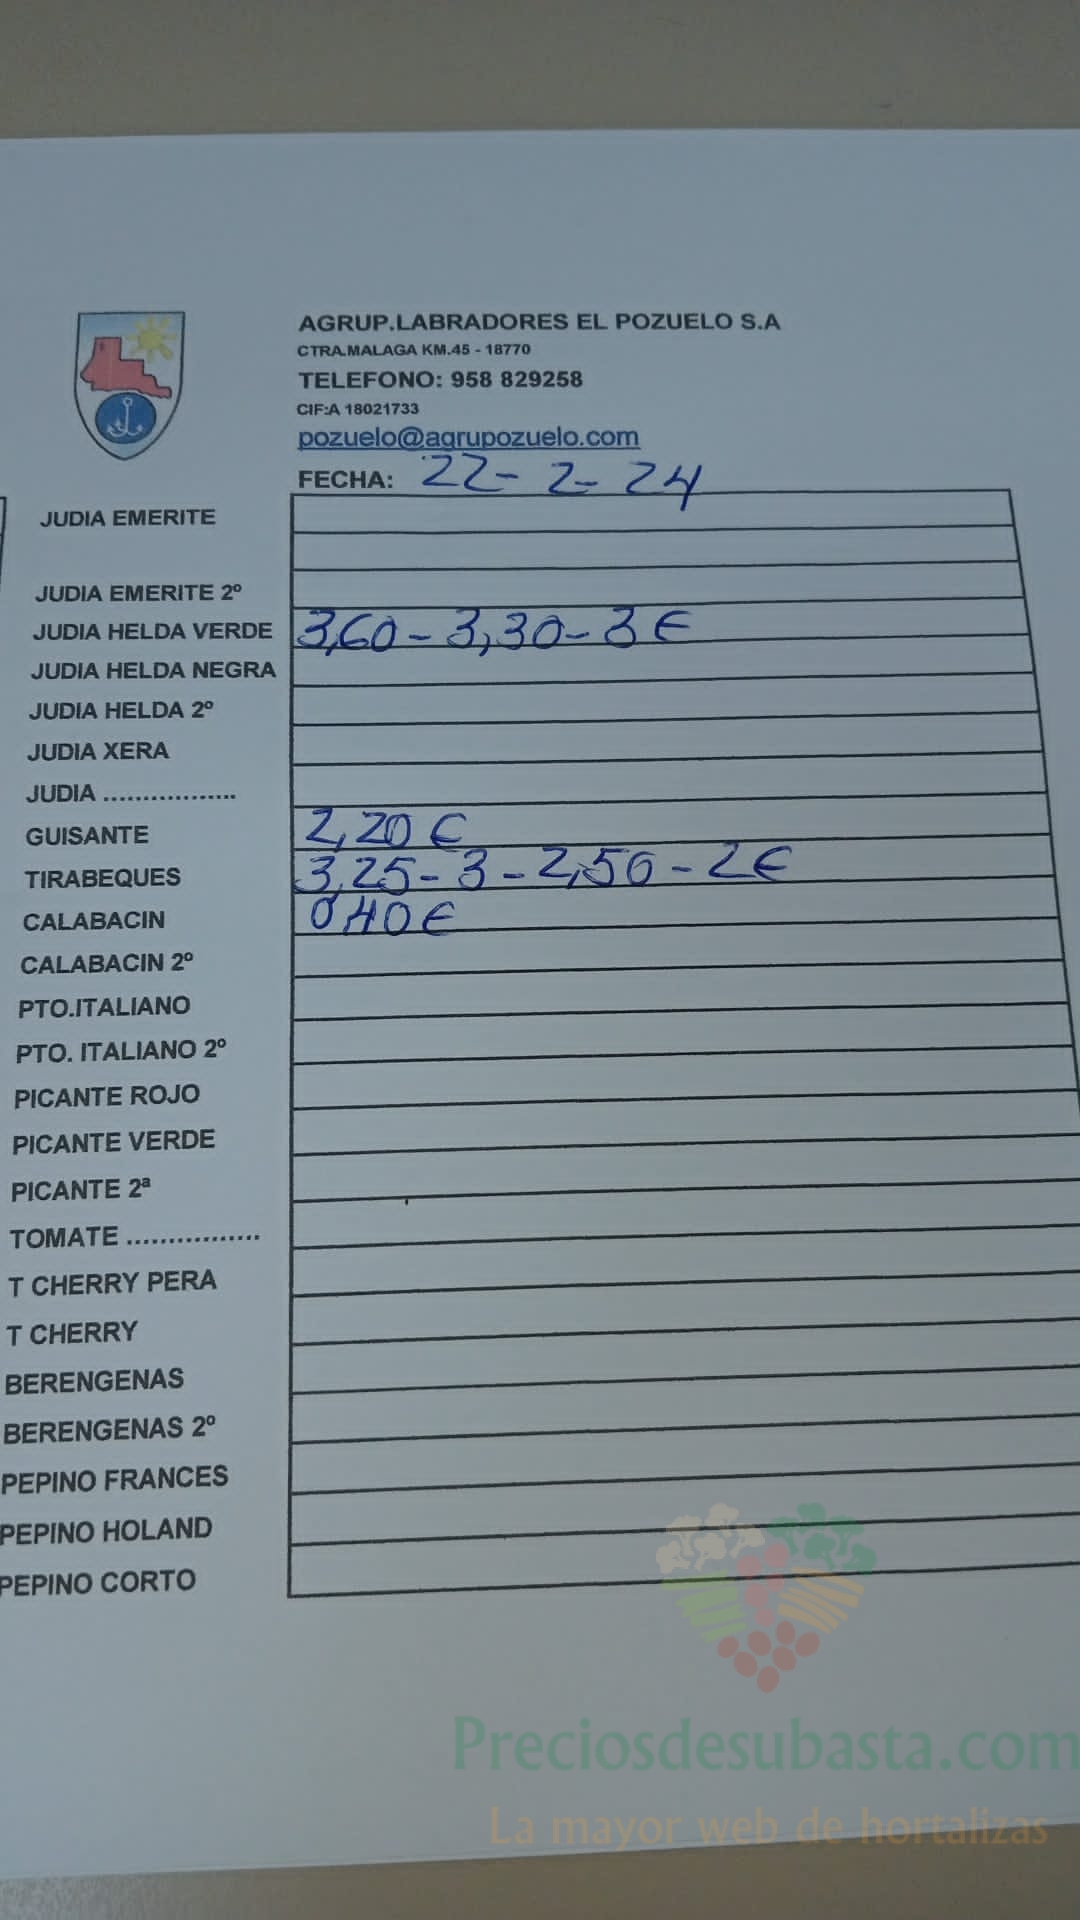 AGRUP.LABRADORES EL POZUELO S.A
CTRA.MALAGA KM.45 - 18770
TELEFONO: 958 829258
CIF:A 18021733
pozuelo@agrupozuelo.com
FECHA: 22-2-24
JUDIA EMERITE
JUDIA EMERITE 2º
JUDIA HELDA VERDE 3,60-3,30-3€
JUDIA HELDA NEGRA
JUDIA HELDA 2º
JUDIA XERA
JUDIA .................
GUISANTE 2,20€
TIRABEQUES 3,25-3-2,50-2€
CALABACIN 0,40€
CALABACIN 2º
PTO.ITALIANO
PTO. ITALIANO 2º
PICANTE ROJO
PICANTE VERDE
PICANTE 2ª
TOMATE ................
T CHERRY PERA
T CHERRY
BERENGENAS
BERENGENAS 2º
PEPINO FRANCES
PEPINO HOLAND
PEPINO CORTO
Preciosdesubasta.com
La mayor web de hortalizas